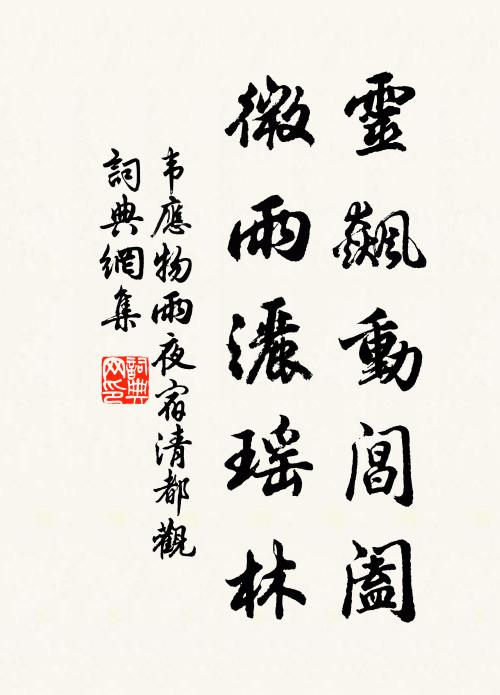 靈飆動閶闔
微雨灑瑶林
韦應物雨夜宿清都觀
詞典網集
詞典
网印